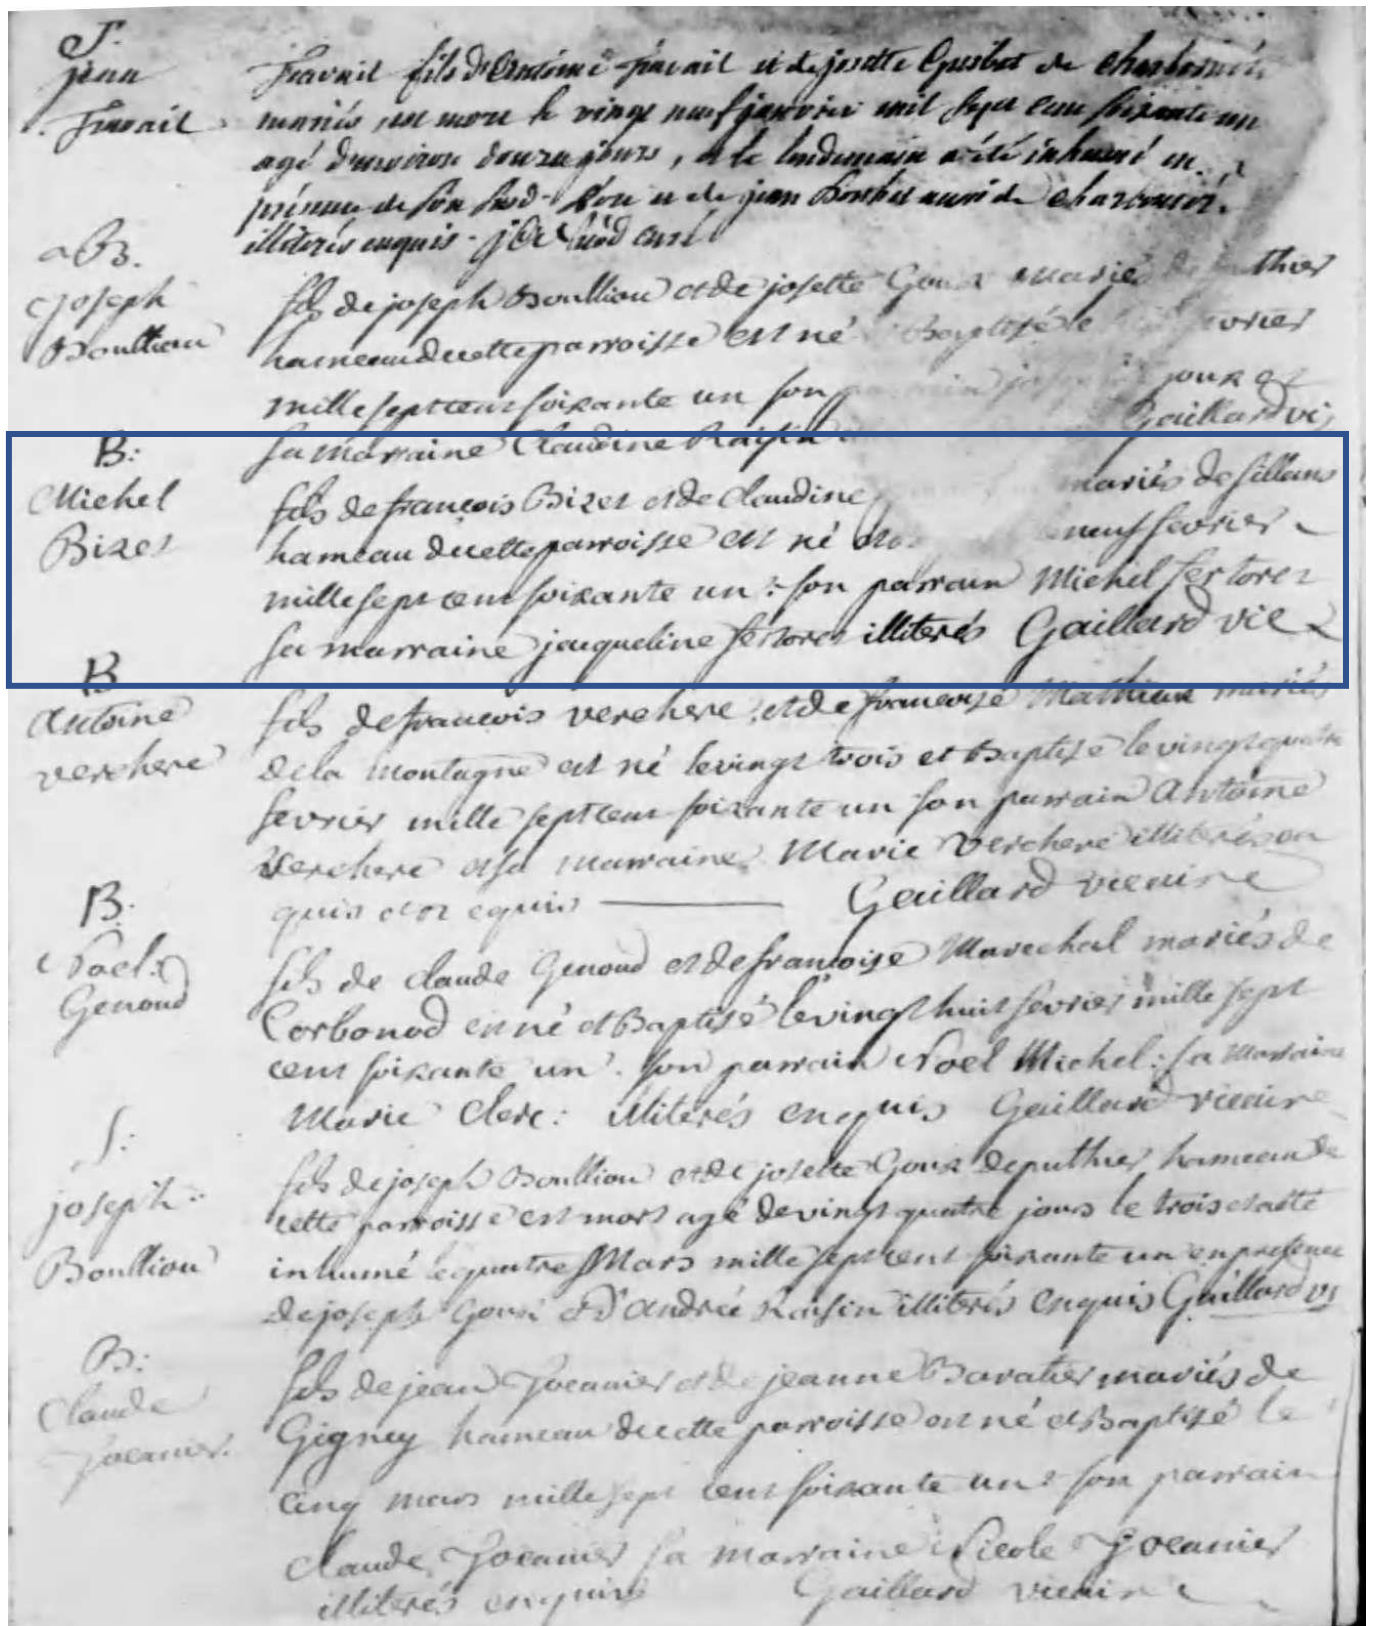 S.
jean
Travail
Travail fils d'Antoine Travail et de josette Guibot de
mariés, est mort le vingt neuf janvier mil sept cent soixante un
agé d'environ douze jours, et le lendemain a été inhumé en
présence de et de jean de
illiterés enquis - curé
B.
joseph
Boullion
fils de joseph Boullion et de josette Goux mariés de puthier
hameau de cette parroisse est né Baptisé le fevrier
mille sept cent soixante un son joux et
sa marraine Claudine Raisin Gaillard vi
B:
Michel
Bizet
fils de françois Bizet et de Claudine mariés de sillans
hameau de cette parroisse est né neuf fevrier
mille sept cent soixante un : son parrain Michel fertoret
sa marraine jacqueline fertoret illiterés Gaillard vic
B
Antoine
verchere
fils de francois verchere et de françoise Mathieux mariés
de la montagne est né le vingt trois et Baptisé le vingt quatre
fevrier mille sept cent soixante un son parrain Antoine
Verchere et sa marraine Marie Verchere illiterés en
quis et requis Gaillard vicaire
B.
Noel
Genoud
fils de claude Genoud et de françoise Marechal mariés de
Corbonod est né et Baptisé le vingt huit fevrier mille sept
cent soixante un . son parrain Noel Michel : sa marraine
Marie Clerc : illiterés enquis Gaillard vicaire
S:
joseph
Boullion
fils de joseph Boullion et de josette Goux de puthier hameau de
cette parroisse est mort agé de vingt quatre jours le trois et a été
inhumé le quatre Mars mille sept cent soixante un en presence
de joseph Goux et d'andré Raisin illiterés enquis Gaillard vi
B:
Claude
Jocanier
fils de jean Jocanier et de jeanne Baratier mariés de
Gigney hameau de cette parroisse est né et Baptisé le
cinq mars mille sept cent soixante un : son parrain
claude Jocanier sa marraine Nicole Jocanier
illiterés enquis Gaillard vicaire